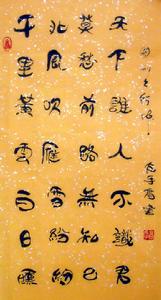 千里黃雲白日曛
北風吹雁雪紛紛
莫愁前路無知己
天下誰人不識君